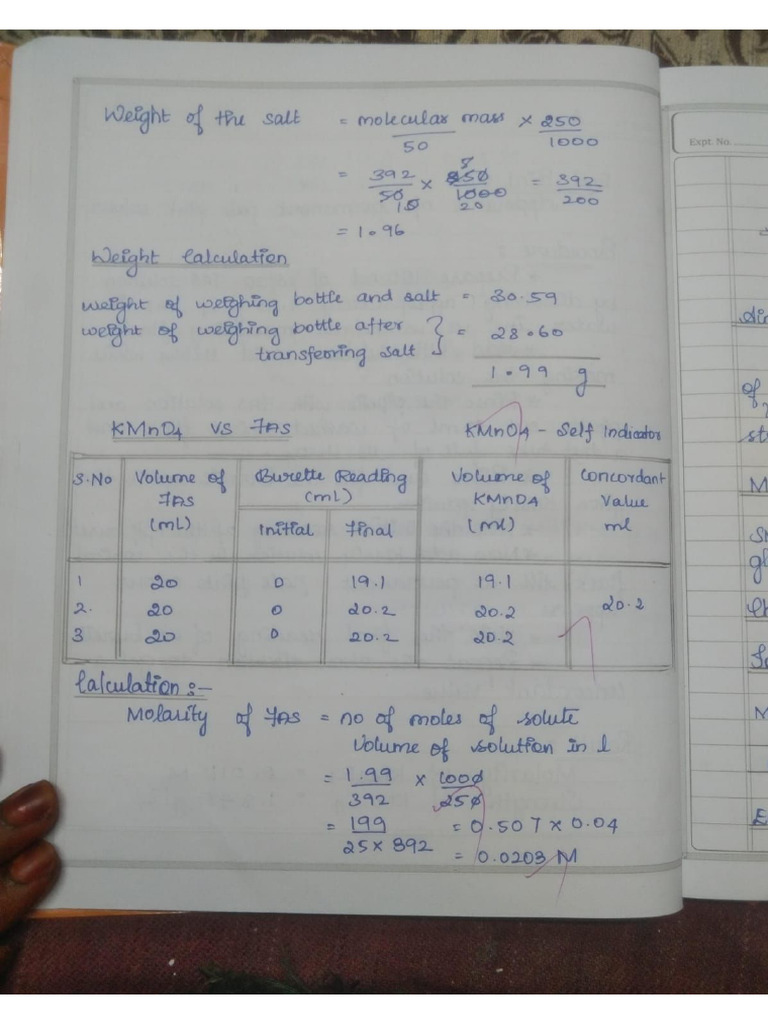 Weight of the salt = molecular mass × 250
50 1000
= 392 × 250 = 392
50 1000 200
10 20
5
= 1.96
Weight Calculation
weight of weighing bottle and salt = 30.59
weight of weighing bottle after } = 28.60
transferring salt
1.99 g
KMnO4 VS FAS KMnO4 - Self Indicator
S.No Volume of FAS (ml) Burette Reading (ml) Volume of KMnO4 (ml) Concordant Value ml
Initial Final
1 20 0 19.1 19.1
2. 20 0 20.2 20.2 20.2
3 20 0 20.2 20.2
Calculation :-
Molarity of FAS = no of moles of solute
Volume of solution in l
= 1.99 × 1000
392 250
= 199 = 0.507 × 0.04
25 × 392
= 0.0203 M
Expt. No.